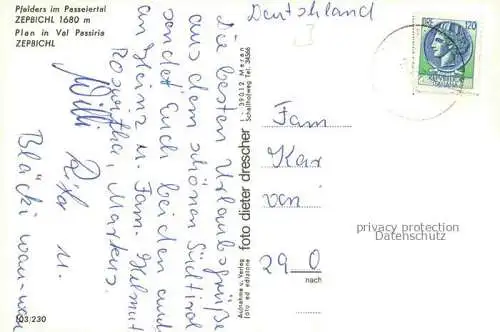 Pfelders im Passeiertal
ZEPBICHL 1680 m
Plan in Val Passiria
ZEPBICHL
Deutschland
120
Die besten Urlaubsgrüße
aus dem schönen Südtirol
sendet Euch beiden und
an Heinz u. Fam. Helmut
Roswitha, Markus.
Willi
Rita u.
Bläcki wau-wau
foto dieter drescher
I - 39012 Meran
Schallhofweg Tel. 34566
Aufnahme u. Verlag
foto ed edizione
Fam
Kar
von
29 0
nach
privacy protection
Datenschutz
103/230